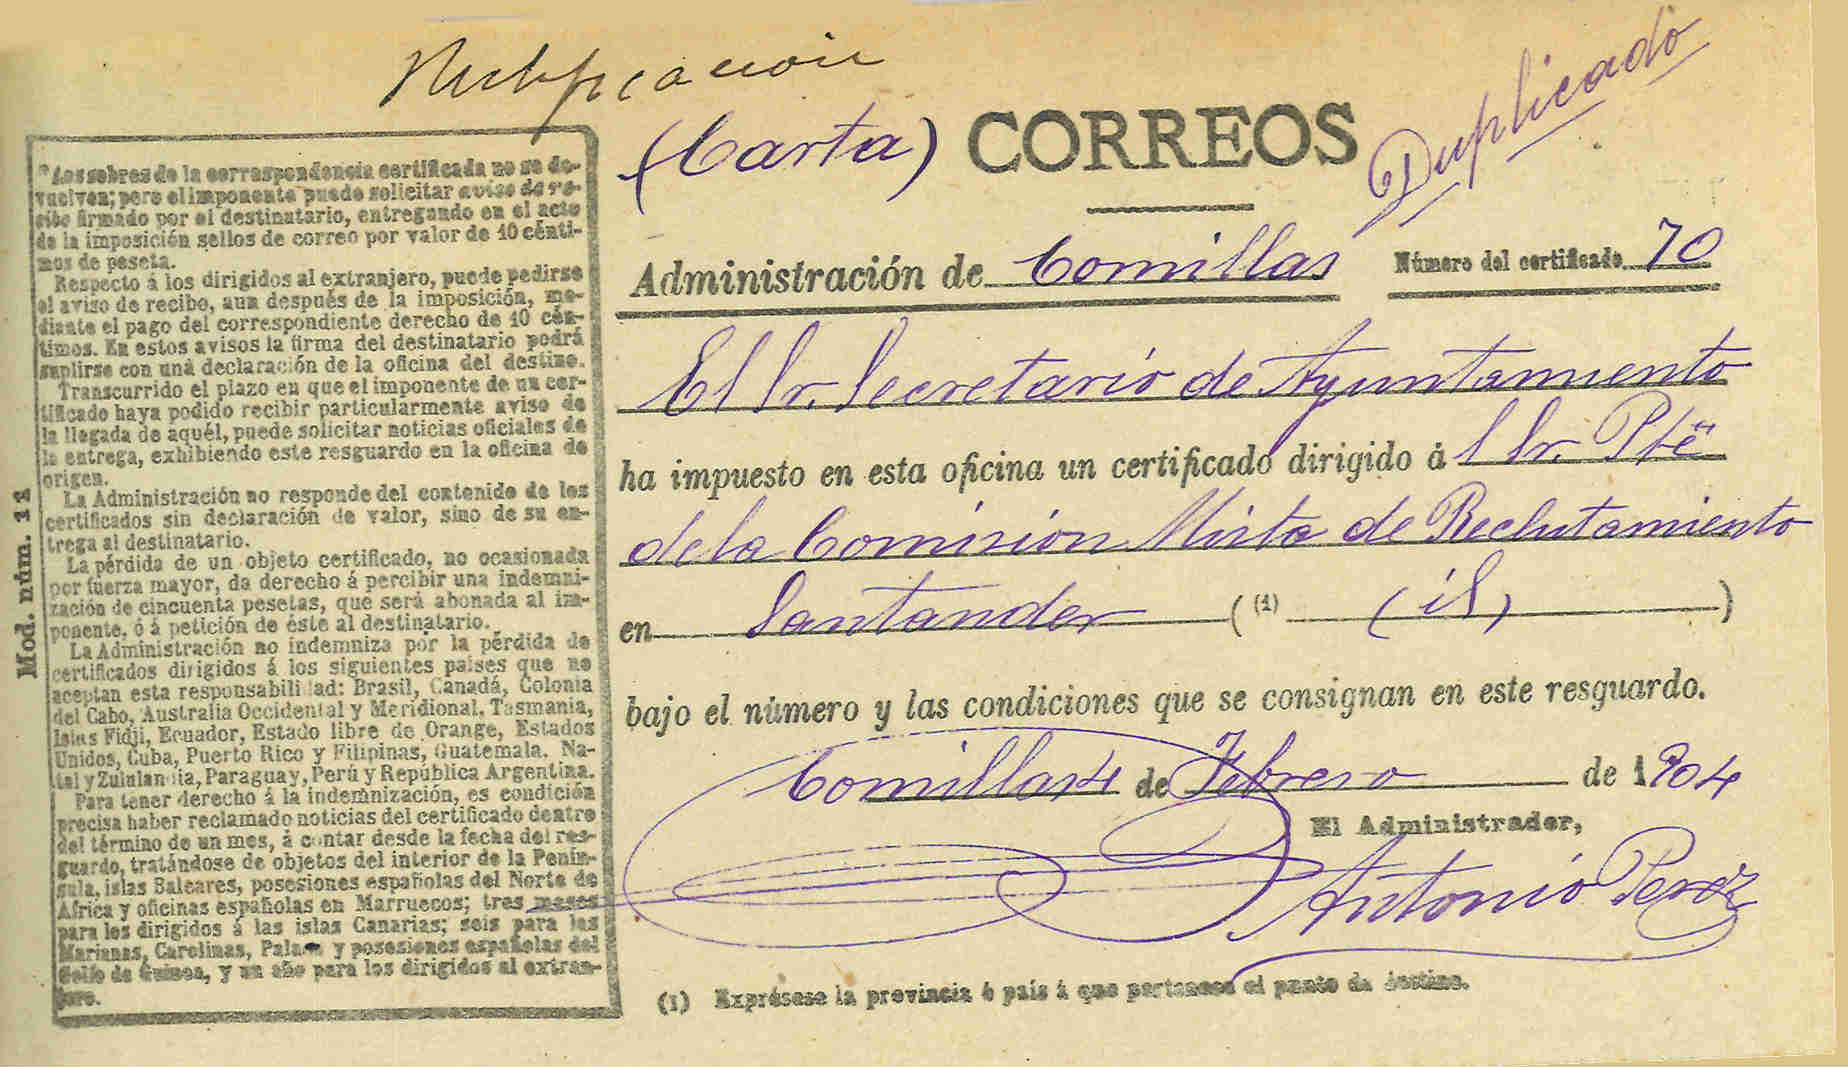 Rectificacion
(Carta) CORREOS
Duplicado
Administración de Comillas Número del certificado 70
El Sr. Secretario de Ayuntamiento
ha impuesto en esta oficina un certificado dirigido á l Sr. Pte
de la Comision Mixta de Reclutamiento
en Santander ( (1) (id) )
bajo el número y las condiciones que se consignan en este resguardo.
Comillas 4 de Febrero de 1904
El Administrador,
Antonio Perez
(1) Exprésese la provincia ó país á que pertenece el punto de destino.
Mod. núm. 11
Los sobres de la correspondencia certificada no se de-
vuelven; pero el imponente puede solicitar aviso de re-
cibo firmado por el destinatario, entregando en el acto
de la imposición sellos de correo por valor de 10 cénti-
mos de peseta.
Respecto á los dirigidos al extranjero, puede pedirse
el aviso de recibo, aun después de la imposición, me-
diante el pago del correspondiente derecho de 10 cén-
timos. En estos avisos la firma del destinatario podrá
suplirse con una declaración de la oficina del destino.
Transcurrido el plazo en que el imponente de un cer-
tificado haya podido recibir particularmente aviso de
la llegada de aquél, puede solicitar noticias oficiales de
la entrega, exhibiendo este resguardo en la oficina de
origen.
La Administración no responde del contenido de los
certificados sin declaración de valor, sino de su en-
trega al destinatario.
La pérdida de un objeto certificado, no ocasionada
por fuerza mayor, da derecho á percibir una indemni-
zación de cincuenta pesetas, que será abonada al im-
ponente, ó á petición de éste al destinatario.
La Administración no indemniza por la pérdida de
certificados dirigidos á los siguientes países que no
aceptan esta responsabilidad: Brasil, Canadá, Colonia
del Cabo, Australia Occidental y Meridional, Tasmania,
Islas Fidji, Ecuador, Estado libre de Orange, Estados
Unidos, Cuba, Puerto Rico y Filipinas, Guatemala, Na-
tal y Zululandia, Paraguay, Perú y República Argentina.
Para tener derecho á la indemnización, es condición
precisa haber reclamado noticias del certificado dentro
del término de un mes, á contar desde la fecha del res-
guardo, tratándose de objetos del interior de la Penín-
sula, islas Baleares, posesiones españolas del Norte de
Africa y oficinas españolas en Marruecos; tres meses
para los dirigidos á las islas Canarias; seis para las
Marianas, Carolinas, Palaos y posesiones españolas del
Golfo de Guinea, y un año para los dirigidos al extran-
jero.